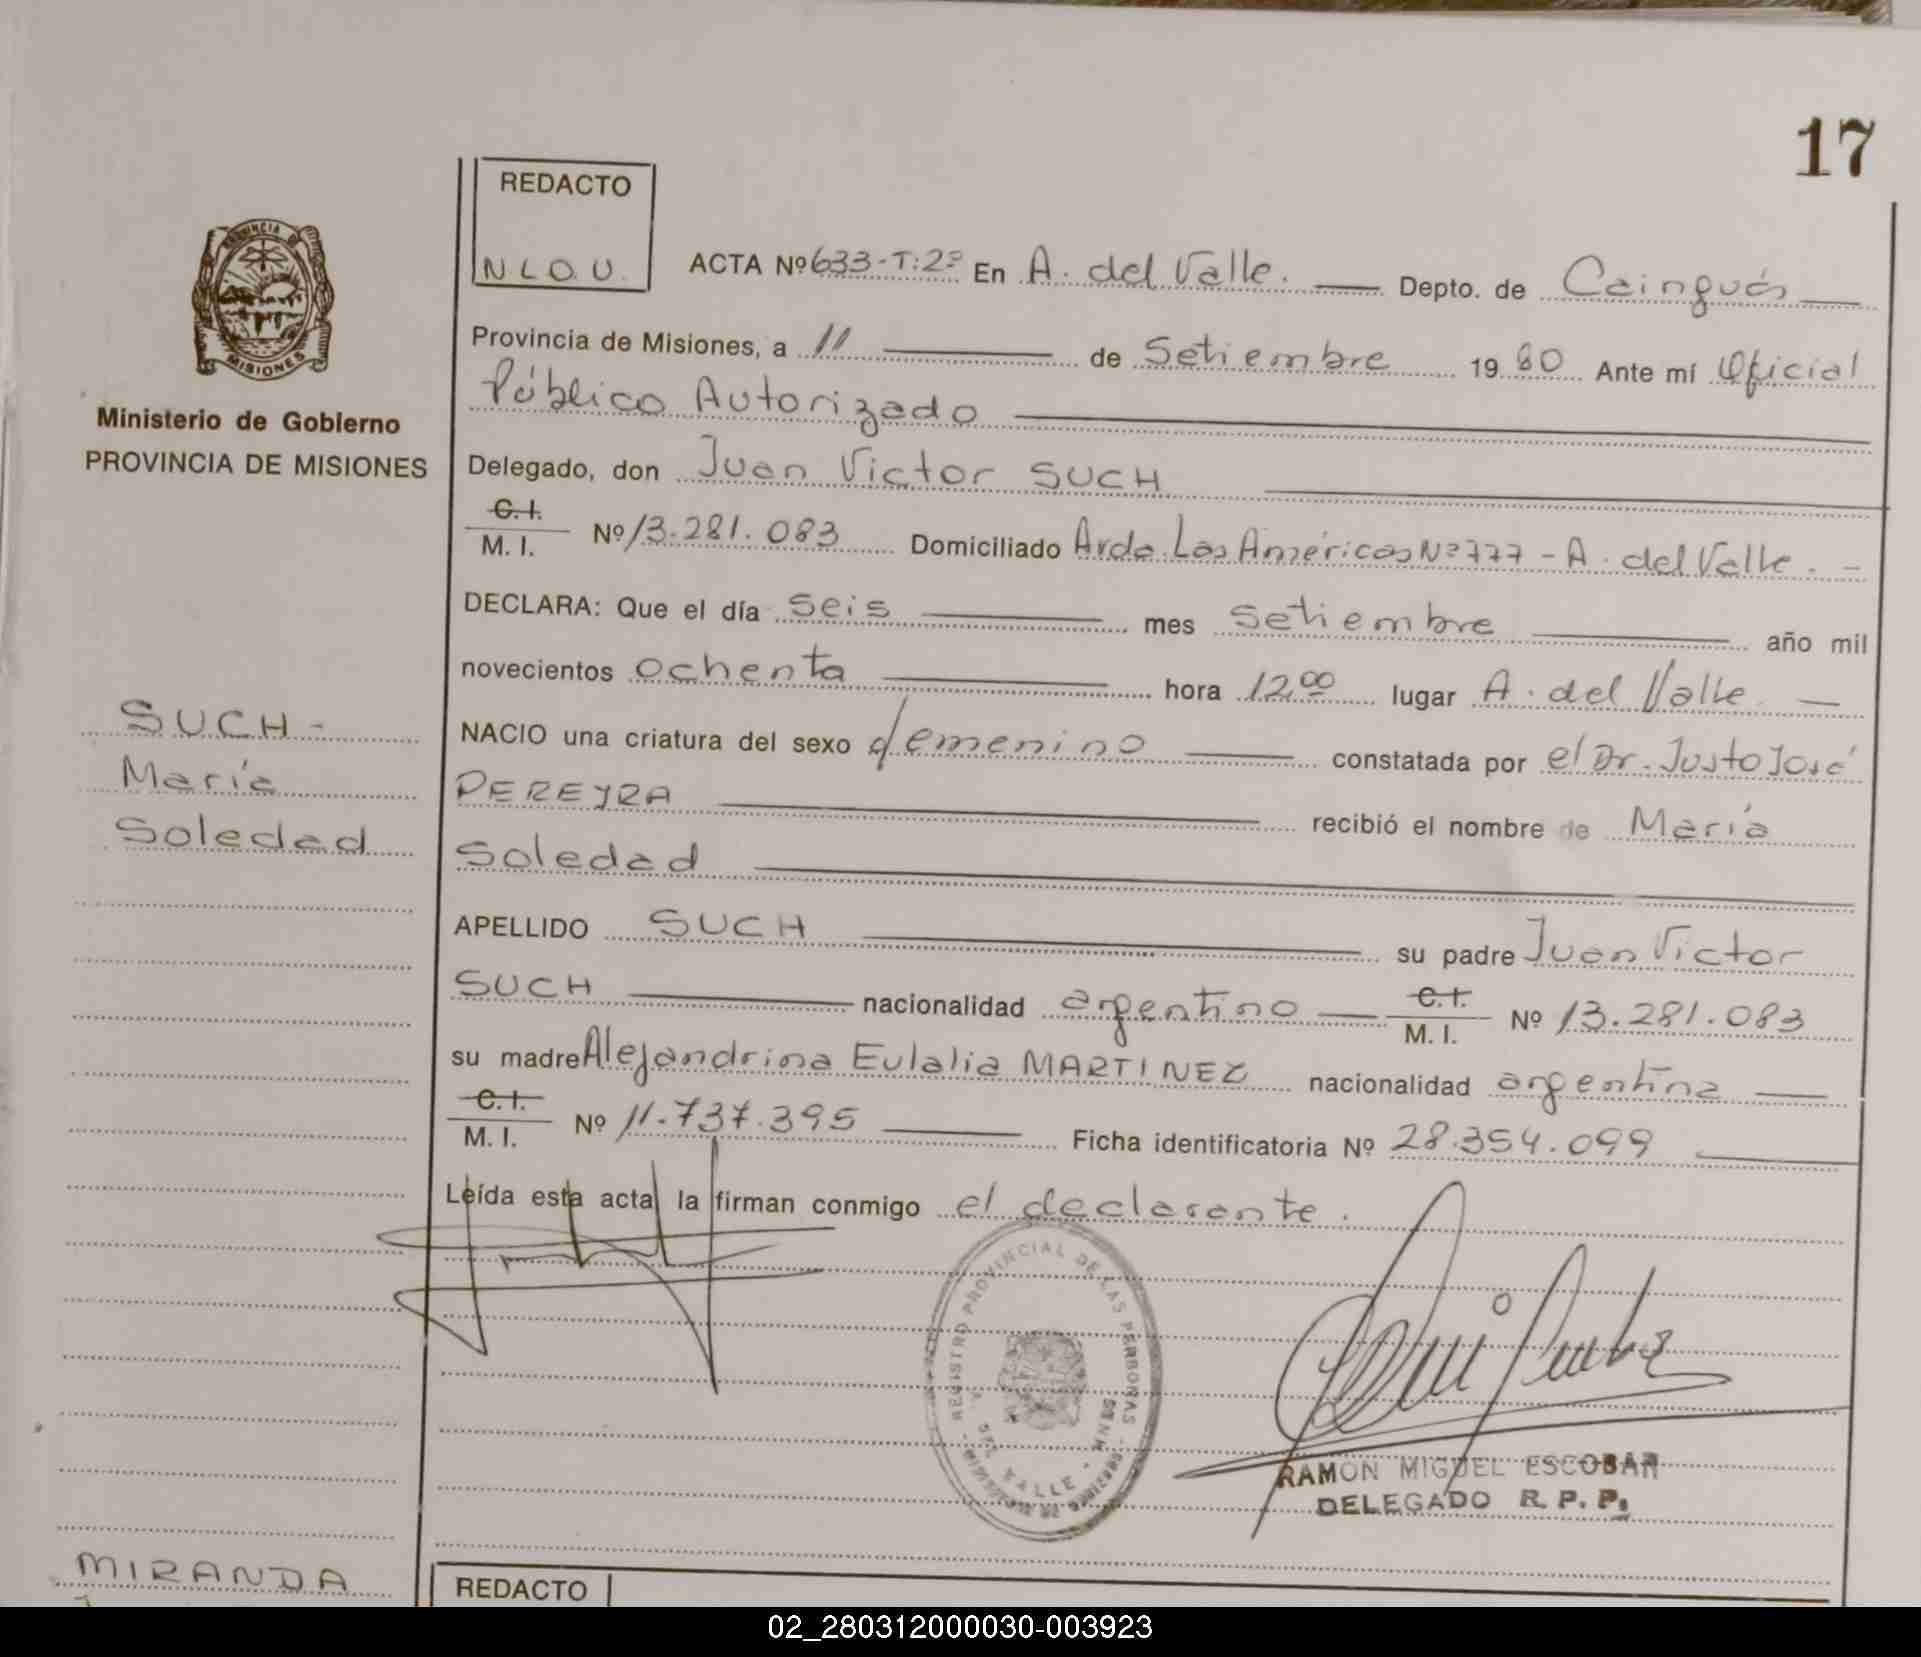 17
REDACTO
N L O. U.
ACTA Nº 633-T:2º En A. del Valle. Depto. de Cainguás
Provincia de Misiones, a 11 de Setiembre 19 80 Ante mí Oficial
Público Autorizado
Delegado, don Juan Victor SUCH
C.I.
M. I. Nº 13.281.083 Domiciliado Avda. Las Américas Nº 777 - A. del Valle. -
DECLARA: Que el día seis mes setiembre año mil
novecientos ochenta hora 12,00 lugar A. del Valle
NACIO una criatura del sexo femenino constatada por el Dr. Justo José
PEREYRA recibió el nombre de María
Soledad
APELLIDO SUCH su padre Juan Victor
SUCH nacionalidad argentino C.I. M. I. Nº 13.281.083
su madre Alejandrina Eulalia MARTINEZ nacionalidad argentina
C.I.
M. I. Nº 11.737.395 Ficha identificatoria Nº 28.354.099
Leída esta acta la firman conmigo el declarante.
PROVINCIA DE
MISIONES
Ministerio de Gobierno
PROVINCIA DE MISIONES
SUCH -
María
Soledad
REGISTRO PROVINCIAL DE LAS PERSONAS
DEL VALLE
RAMON MIGUEL ESCOBAR
DELEGADO R. P. P.
MIRANDA
REDACTO
02_280312000030-003923